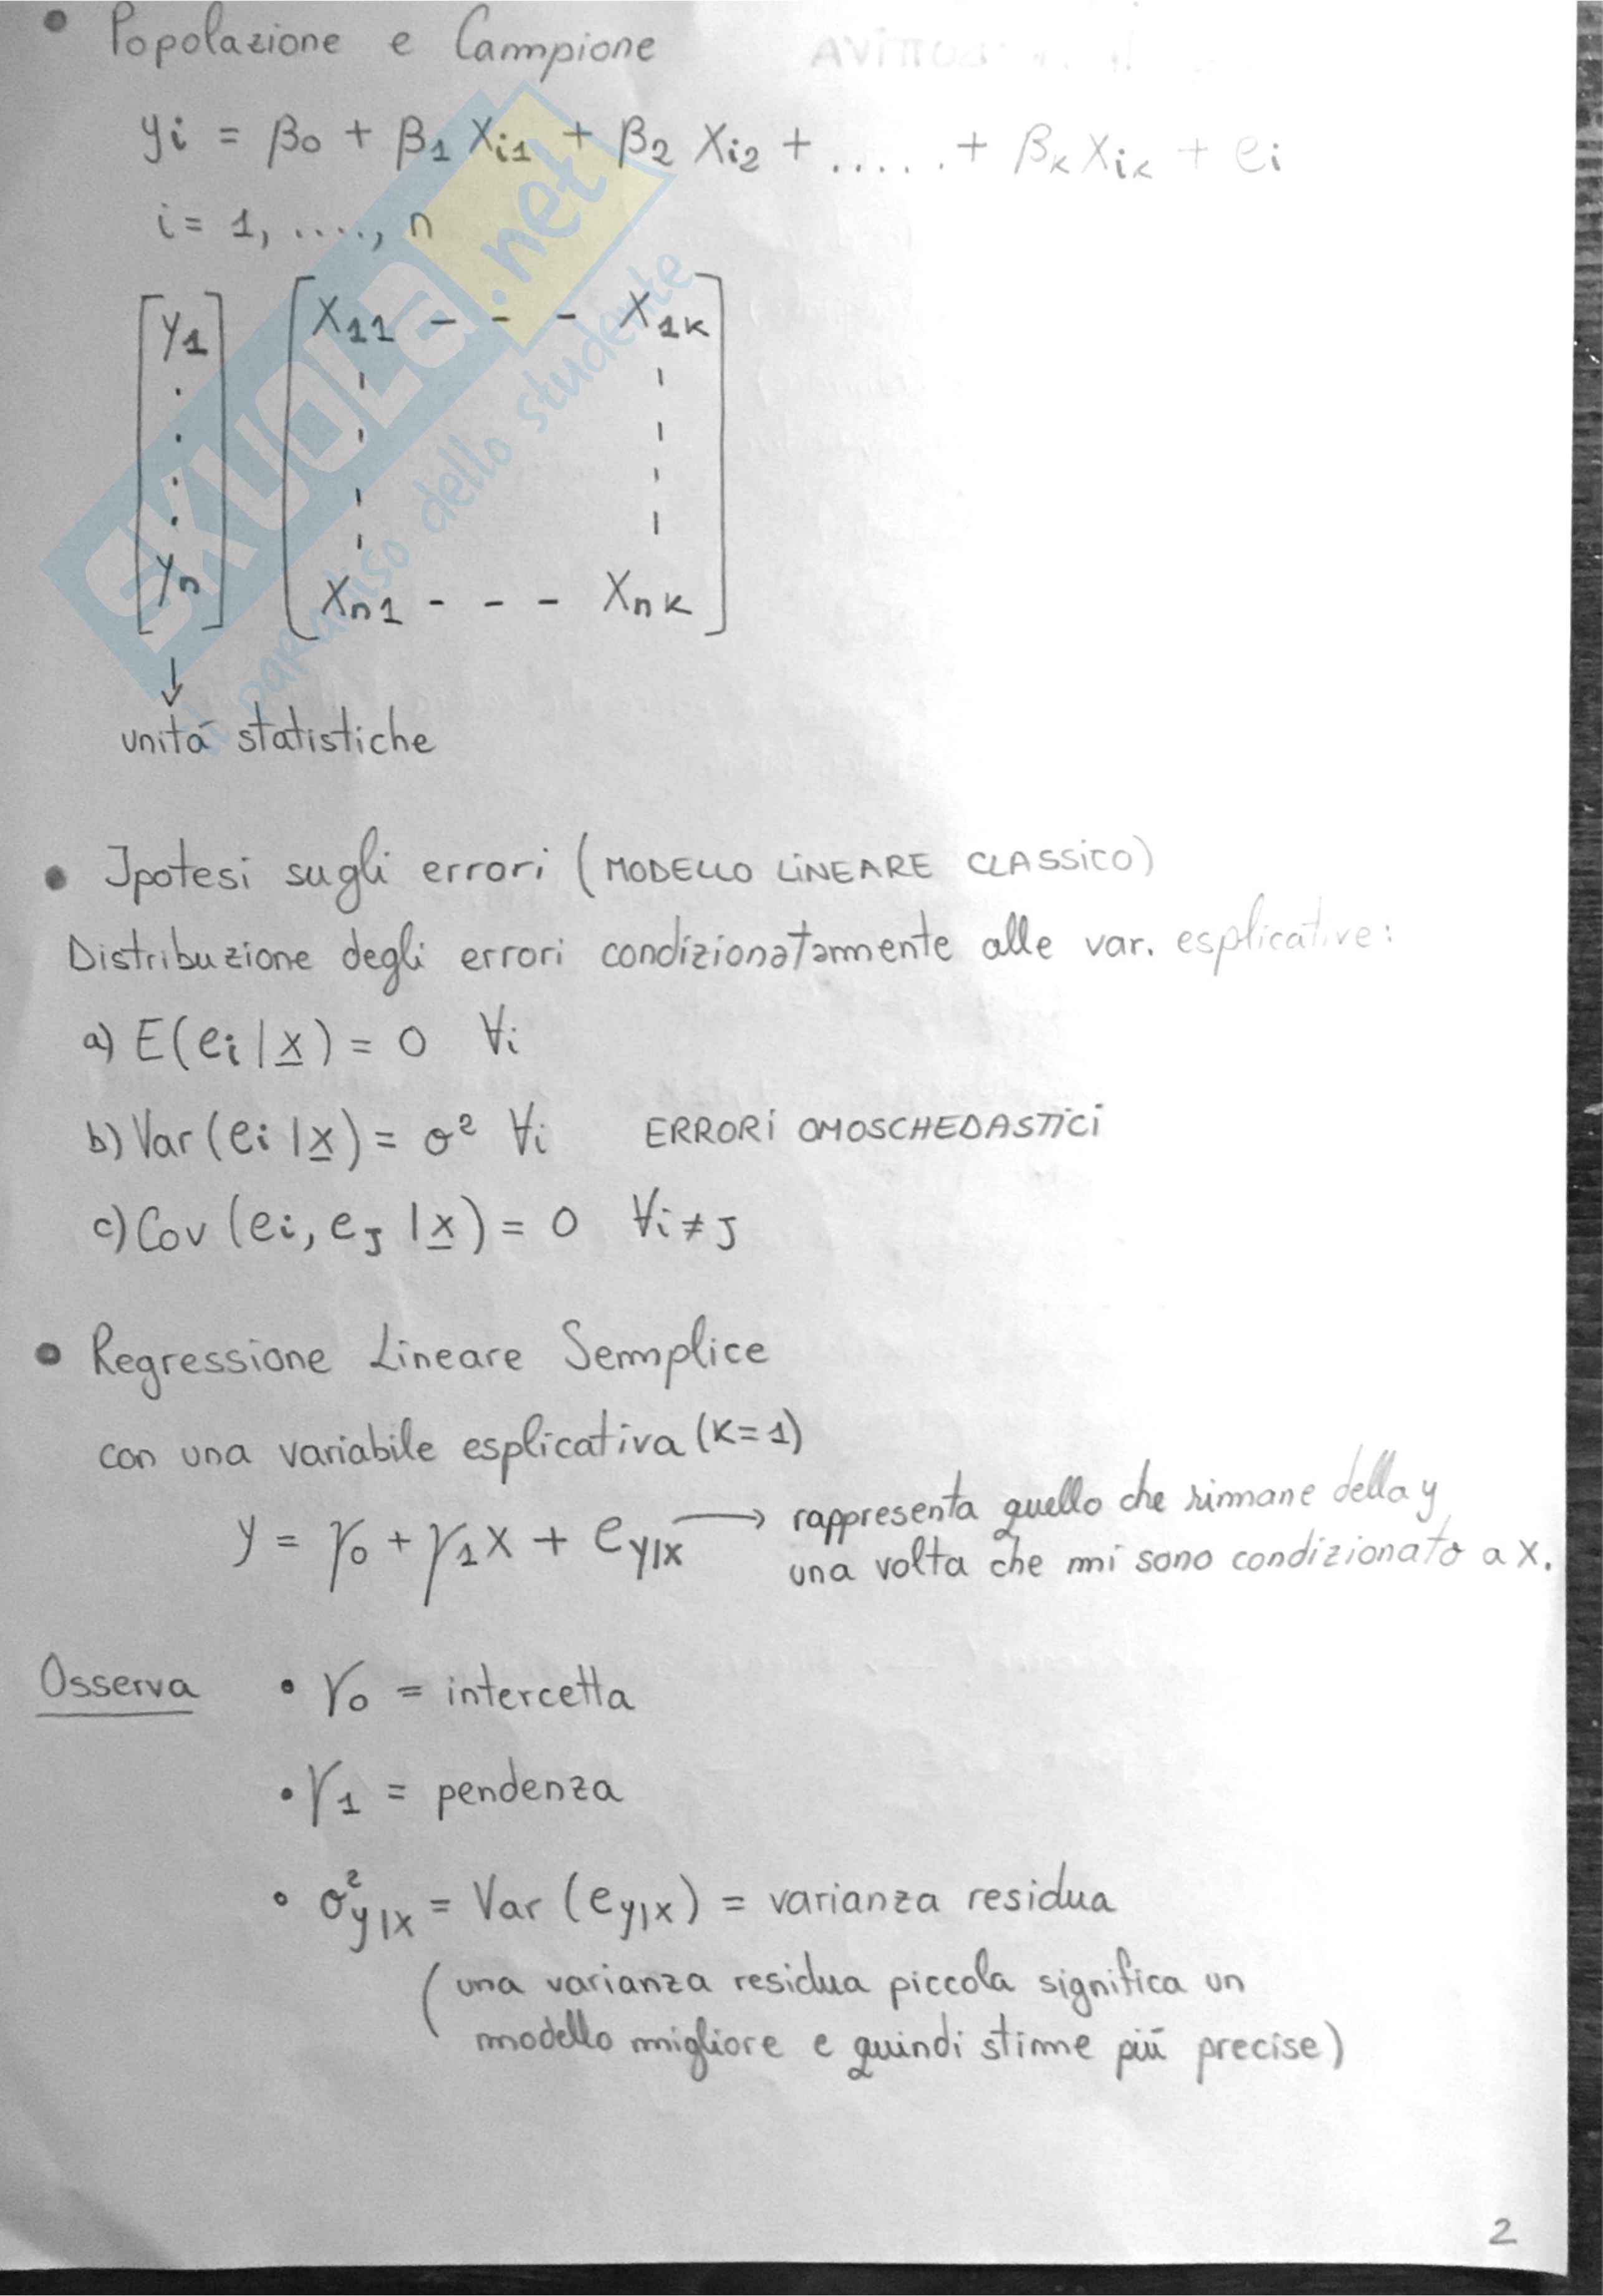 • Popolazione e Campione
yi = β0 + β1 Xi1 + β2 Xi2 + ..... + βk Xik + ei
i = 1, ...., n
[y1 . . . . yn] [X11 - - - X1k
Xn1 - - - Xnk]
↓
unità statistiche
• Ipotesi sugli errori (MODELLO LINEARE CLASSICO)
Distribuzione degli errori condizionatamente alle var. esplicative:
a) E(ei | x) = 0 ∀i
b) Var(ei | x) = σ² ∀i ERRORI OMOSCHEDASTICI
c) Cov(ei, eJ | x) = 0 ∀i≠J
• Regressione Lineare Semplice
con una variabile esplicativa (K=1)
y = γ0 + γ1x + ey|x → rappresenta quello che rimane della y
una volta che mi sono condizionato a x.
Osserva • γ0 = intercetta
• γ1 = pendenza
• σ²y|x = Var (ey|x) = varianza residua
(una varianza residua piccola significa un
modello migliore e quindi stime più precise)
2
SKUOLA.net
il paradiso dello studente